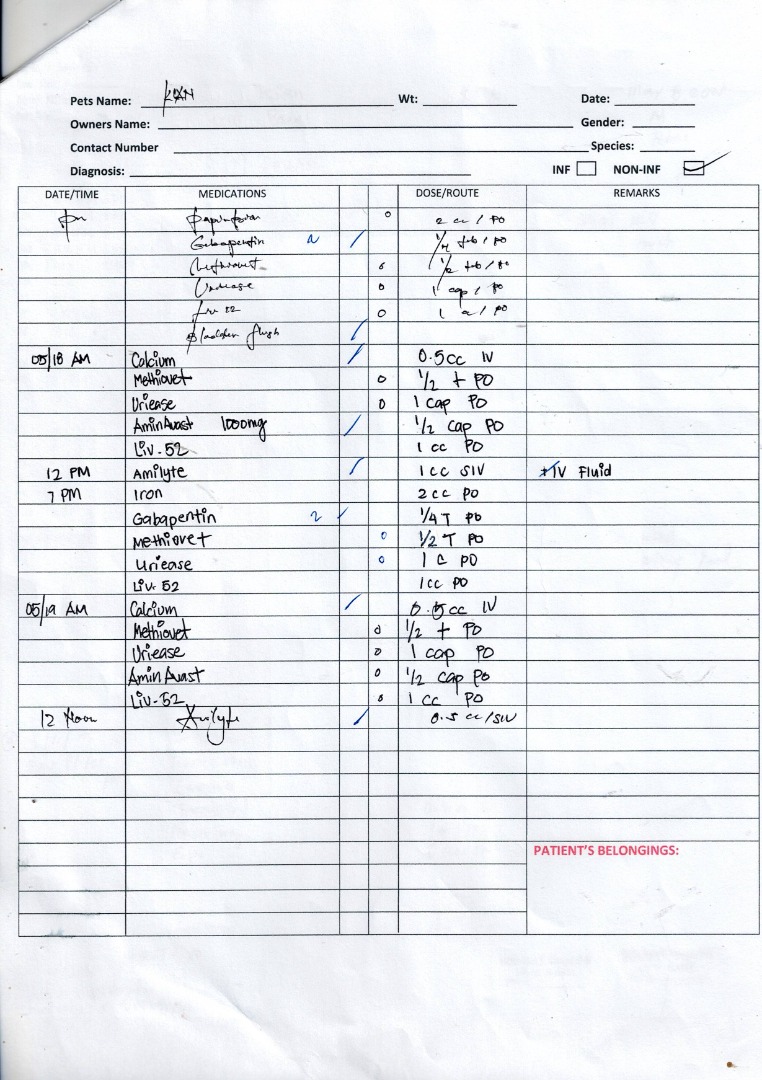 Pets Name: KAN Wt: Date:
Owners Name: Gender:
Contact Number Species:
Diagnosis: INF NON-INF
DATE/TIME MEDICATIONS DOSE/ROUTE REMARKS
pm 2 cc / PO
Gabapentin 2 1/4 tab / PO
Methiovet 1/2 tab / PO
Uriease 1 cap / PO
Liv 52 1 cc / PO
Bladder flush
05/18 AM Calcium 0.5cc IV
Methiovet 1/2 t PO
Uriease 1 cap PO
AminAvast 1000mg 1/2 cap PO
Liv-52 1 cc PO
12 PM Amilyte 1cc SIV +IV Fluid
7 PM Iron 2cc PO
Gabapentin 2 1/4 T PO
Methiovet 1/2 T PO
Uriease 1 C PO
Liv-52 1cc PO
05/19 AM Calcium 0.5cc IV
Methiovet 1/2 t PO
Uriease 1 cap PO
AminAvast 1/2 cap PO
Liv-52 1 cc PO
12 Noon Amilyte 0.5 cc/SIV
PATIENT'S BELONGINGS: